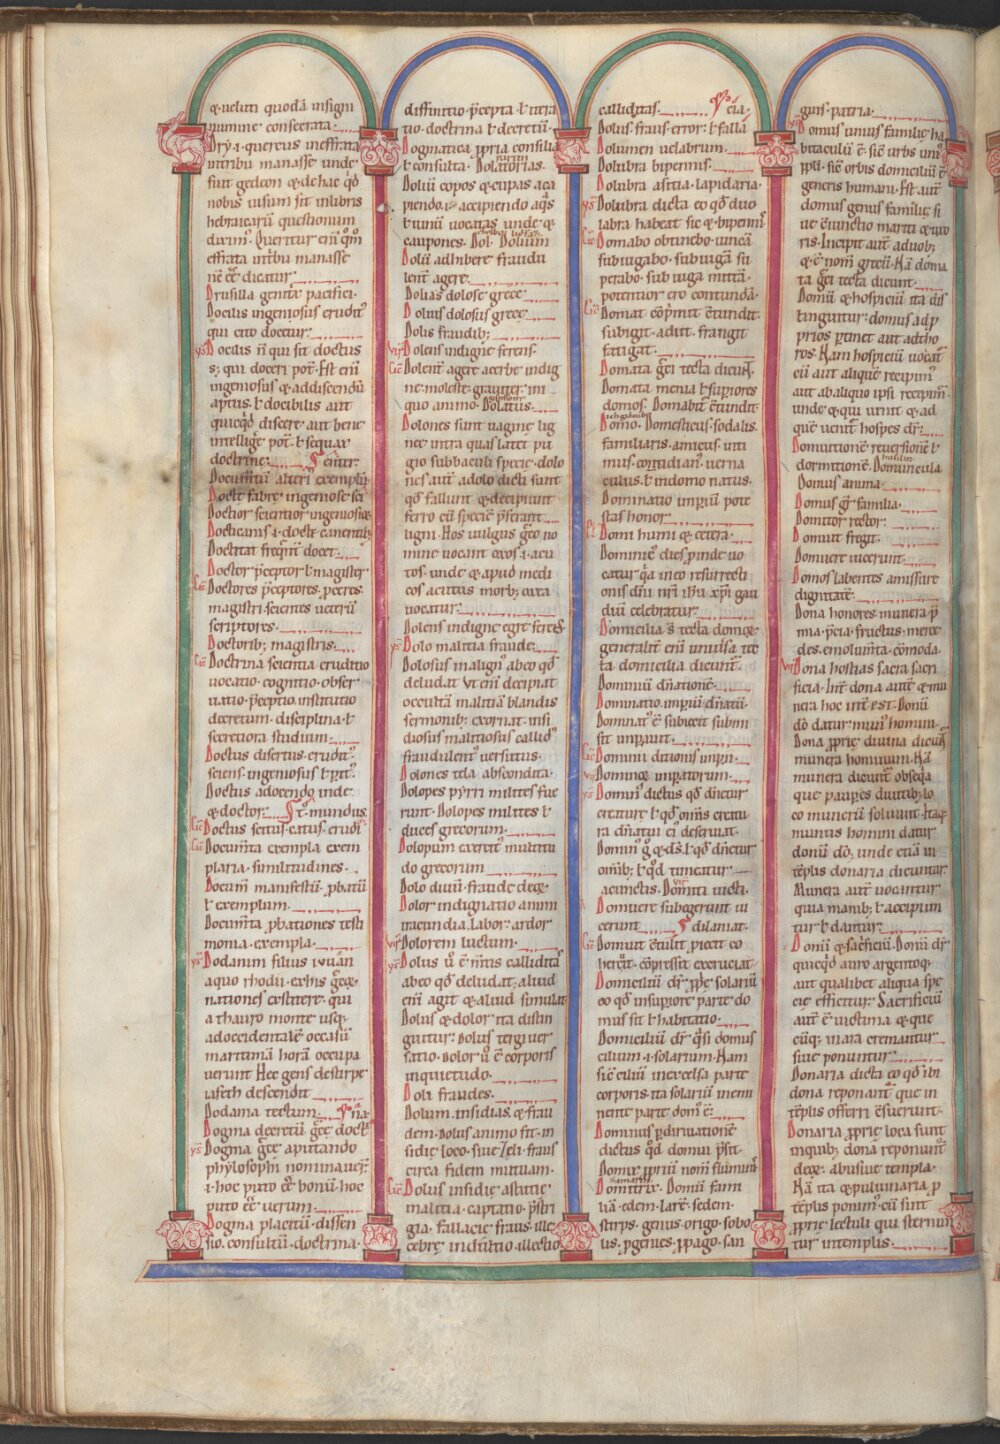 & veluti quodā insigni
numine consecrata.
Dry. i. quercus in effrata
in tribu manasse unde
fuit gedeon & de hac qđ
nobis visum sit in libris
hebraicarū questionum
dixim᷒. Queritur eni᷒ qm̄
effrata in tribu manasse
nc̄ eē dicatur.
Drusilla
Docilis ingeniosus erudit᷒
qui cito docetur.
Docilis n̄ qui sit doctus
s; qui doceri pot̄. Est eni᷒
ingeniosus & ad discendū
aptus. ł docibilis aut
quicqđ discere aut bene
intellige pot̄. ł sequax
doctrine.
Documtū alteri᷒ exemplū
Docte fabre ingeniose
Doctior scientior ingeniosior
Docticanis. i. docte canentib;
Doctitat freqn̄t docet.
Doctor p̄ceptor ł magister
Doctores p̄ceptores. peritores.
magistri scientes veterū
scriptores.
Doctorib; magistris.
Doctrina scientia eruditio
vocatio. cognitio. obser
vatio. p̄ceptio. institutio
decretum. disciplina. ł
secretiora studium.
Doctus disertus. erudit᷒.
sciens. ingeniosus ł p̄it᷒.
Doctus a docendo. inde
& doctor. mundus.
Doctus
Documta exempla exem
plaria. similitudines.
Documt̄ manifestū. pbatū
ł exemplum.
Documta pbationes testi
monia. exempla.
Dodanim filius iuuan
a quo rhodii. exhis gēq
nationes exstitere. qui
a thauro monte usq;
ad occidentale occasū
maritimā horā occupa
verunt. Hec gens de stirpe
iafeth descendit
Dodama tectum.
Dogma decretū grēe doct
Dogma grēe a putando
phylosophi nominauer̄.
i. hoc puto eē bonū. hoc
puto eē uerum.
Dogma placetū. dissen
sio. consultū. doctrina.
diffinitio p̄cepta. ł utra
tio. doctrina ł decretū.
Dogmatica ppria consilia
ł consulta. Dolatorias.
Dolii copos & cupas a ca
piendo. i. accipiendo aq̄s
ł uinū uocatas unde &
caupones. Dol. Dolium
Dolū adhibere fraudu
lent agere.
Dolias dolose. grece.
Dolius dolosus grece.
Dolis fraudib;.
Dolens indigne ferens.
Dolent agere acerbe indig
ne. moleste. grauiter. in
quo animo. Dolatius.
Dolones sunt uagine lig
nee intra quas latet pu
gio sub baculi specie. dolo
nes aut a dolo dicti sunt
qđ fallunt & decipiunt
ferro cū specie p̄ferant
ligni. Hos uulgus greco no
mine uocant oxos. i. acu
tos. unde & apud medi
cos acutus morb; oxia
uocatur.
Dolens indigne egre ferens.
Dolo malitia fraude.
Dolosus malign᷒. ab eo qđ
deludat. Vt eni᷒ decipiat
occultā malitiā blandis
sermonib; exornat. insi
diosus malitiosus callid᷒
fraudulent᷒ versutus.
Dolones tela abscondita.
Dolopes pyrri milites fue
runt. Dolopes milites ł
duces grecorum.
Dolopum exercit᷒ multitu
do grecorum
Dolo diuū. fraude deoꝝ.
Dolor indignatio animi
iracundia. labor. ardor
Dolorem luctum.
Dolus u᷒ ē m̄tis calliditas
ab eo qđ deludat. aliud
eni᷒ agit & aliud simulat
Dolus & dolor ita distin
guitur. dolus tergiuer
satio. dolor u᷒ ē corporis
inquietudo.
Doli fraudes.
Dolum. insidias. & frau
dem. dolus animo fit. in
sidie loco. siue Zeli. fraus
circa fidem mutuam.
Dolus insidie. astutie
malitia. captatio. p̄stri
gia. fallacie. fraus. ille
cebre. inductio. illectio
calliditas.
Dolus. fraus. error. ł falla
Dolumen uelabrum.
Dolubra bipennis.
Dolubra ascia. lapidaria.
Dolubra dicta eo qđ duo
labra habeat sic & bipenn᷒
Domabo obtinebo. uincā
subiugabo. subiugā su
perabo. sub iuga mittā.
potentior ero contundā.
Domat cōp̄mit c̄tundit.
subigit. adiit. frangit
fatigat.
Domata grēi tecta dicunt.
Domata menia ł sup̄iores
domos. Domabit c̄tundit
Domo. Domesticus. sodalis.
familiaris. amicus. inti
mus. cottidian᷒. uerna
culus. ł in domo natus.
Dominatio impiū pote
stas honor.
Domi humi & cetera.
Dominic᷒ dies pinde uo
catur q̄a in eo resurrecti
onis dn̄i nr̄i ihu xp̄i gau
diū celebratur.
Domicilia s̄ tecta domoꝝ.
generalit eni᷒ uniuersa tec
ta domicilia dicunt.
Dominiū dn̄ationē.
Dominatio. impiū dn̄atū.
Dominat ē subiecit submi
sit impauit.
Domini ditionis
Dominoꝝ impatorum.
Domin᷒ dictus qđ dn̄etur
creature ł qđ om̄is creatu
ra dn̄atui ei᷒ deseruat.
Domin᷒ g̊ & ds̄. ł qđ dn̄etur
om̄ib; ł qđ timeatur
a cunctis. Domiti uicti.
Domuere subegerunt ui
cerunt dilaniat.
Domuit c̄tulit piecit co
hercuit. cōpressit excruciat.
Domiciliū dr̄ p̄pe solariū
eo qđ in supiore parte do
mus sit ł habitatio.
Domiciliū dr̄ q̄si domus
cilium. i. solarium. Nam
sic ciliū in excelsa parte
corporis. ita solariū inemi
nente parte dom᷒ ē.
Dominus p diriuationē
dictus qđ domui p̄sit.
Domix ppriū nom̄ fluminis
Domitrix. Domū fami
liā. edem. larē. sedem.
stirps. genus. origo. sobo
lis. pgenies. ppago. san
guis. patria.
Domus unius familie ha
bitaculū ē. sic urbs uni᷒
ppli. sic orbis domiciliū ē
generis humani. Est aut
domus genus familie si
ue c̄iunctio mariti & uxo
ris. Incipit aut a duob;
& ē nom̄ grecū. Nā doma
ta grēi tecta dicunt.
Domū & hospiciū ita dis
tinguitur. domus ad p
prios ptinet aut ad tho
ros. Nam hospiciū uocat
cū aut aliquē recipim᷒
aut ab aliquo ipsi recipim᷒.
unde & qui uenit & ad
quē uenit hospes dr̄.
Domutionē reuersionē ł
dormitionē. Domuncula
Domus anima.
Domus gr̄ familia.
Domitor rector.
Domuit fregit.
Domuere uicerunt.
Domos labentes amissure
dignitatē.
Dona honores munera p̄
mia. p̄cia. fructus. merce
des. emolumta. cōmoda.
Dona hostias sacra sacri
ficia. Int̄ dona aut & mu
nera hoc int̄ est. Donū
dō datur. mun᷒ homin.
Dona pprie diuina dicunt
munera hominum. Nā
munera dicunt obseq̄a
que paupes diuitib; lo
co munerū soluunt. Itaq;
munus homini datur.
donū dō. unde etiā in
tēplis donaria dicuntur.
Munera aut uocantur
quia manib; ł accipiun
tur ł dantur.
Donū & sacrificiū. Donū dr̄
quicqđ auro argentoq;
aut qualibet aliqua spe
cie efficitur. Sacrificiū
aut ē uictima & que
cūq; in ara cremantur
siue ponuntur.
Donaria dicta eo qđ ibi
dona reponant᷒ que in
tēplis offerri c̄sueruint.
Donaria pprie loca sunt
in quib; dona reponunt᷒
deoꝝ. abusiue templa.
Nā ita & puluinaria p
tēplis ponim᷒. cū sint
pprie lectuli qui sternun
tur in templis.